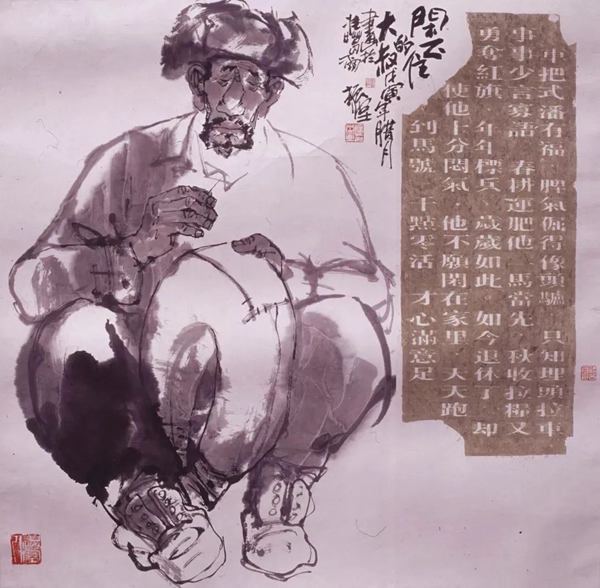 車把式潘有福 脾氣倔得像頭驢 只知埋頭拉車
事事少言寡語 春耕運肥他一馬當先 秋收拉糧又
勇奪紅旗 年年標兵 歲歲如此 如今退休了 却
使他十分悶氣 他不願閑在家里 天天跑
到馬號 干點零活 才心滿意足
閒不住
的
大叔 壬寅年臘月